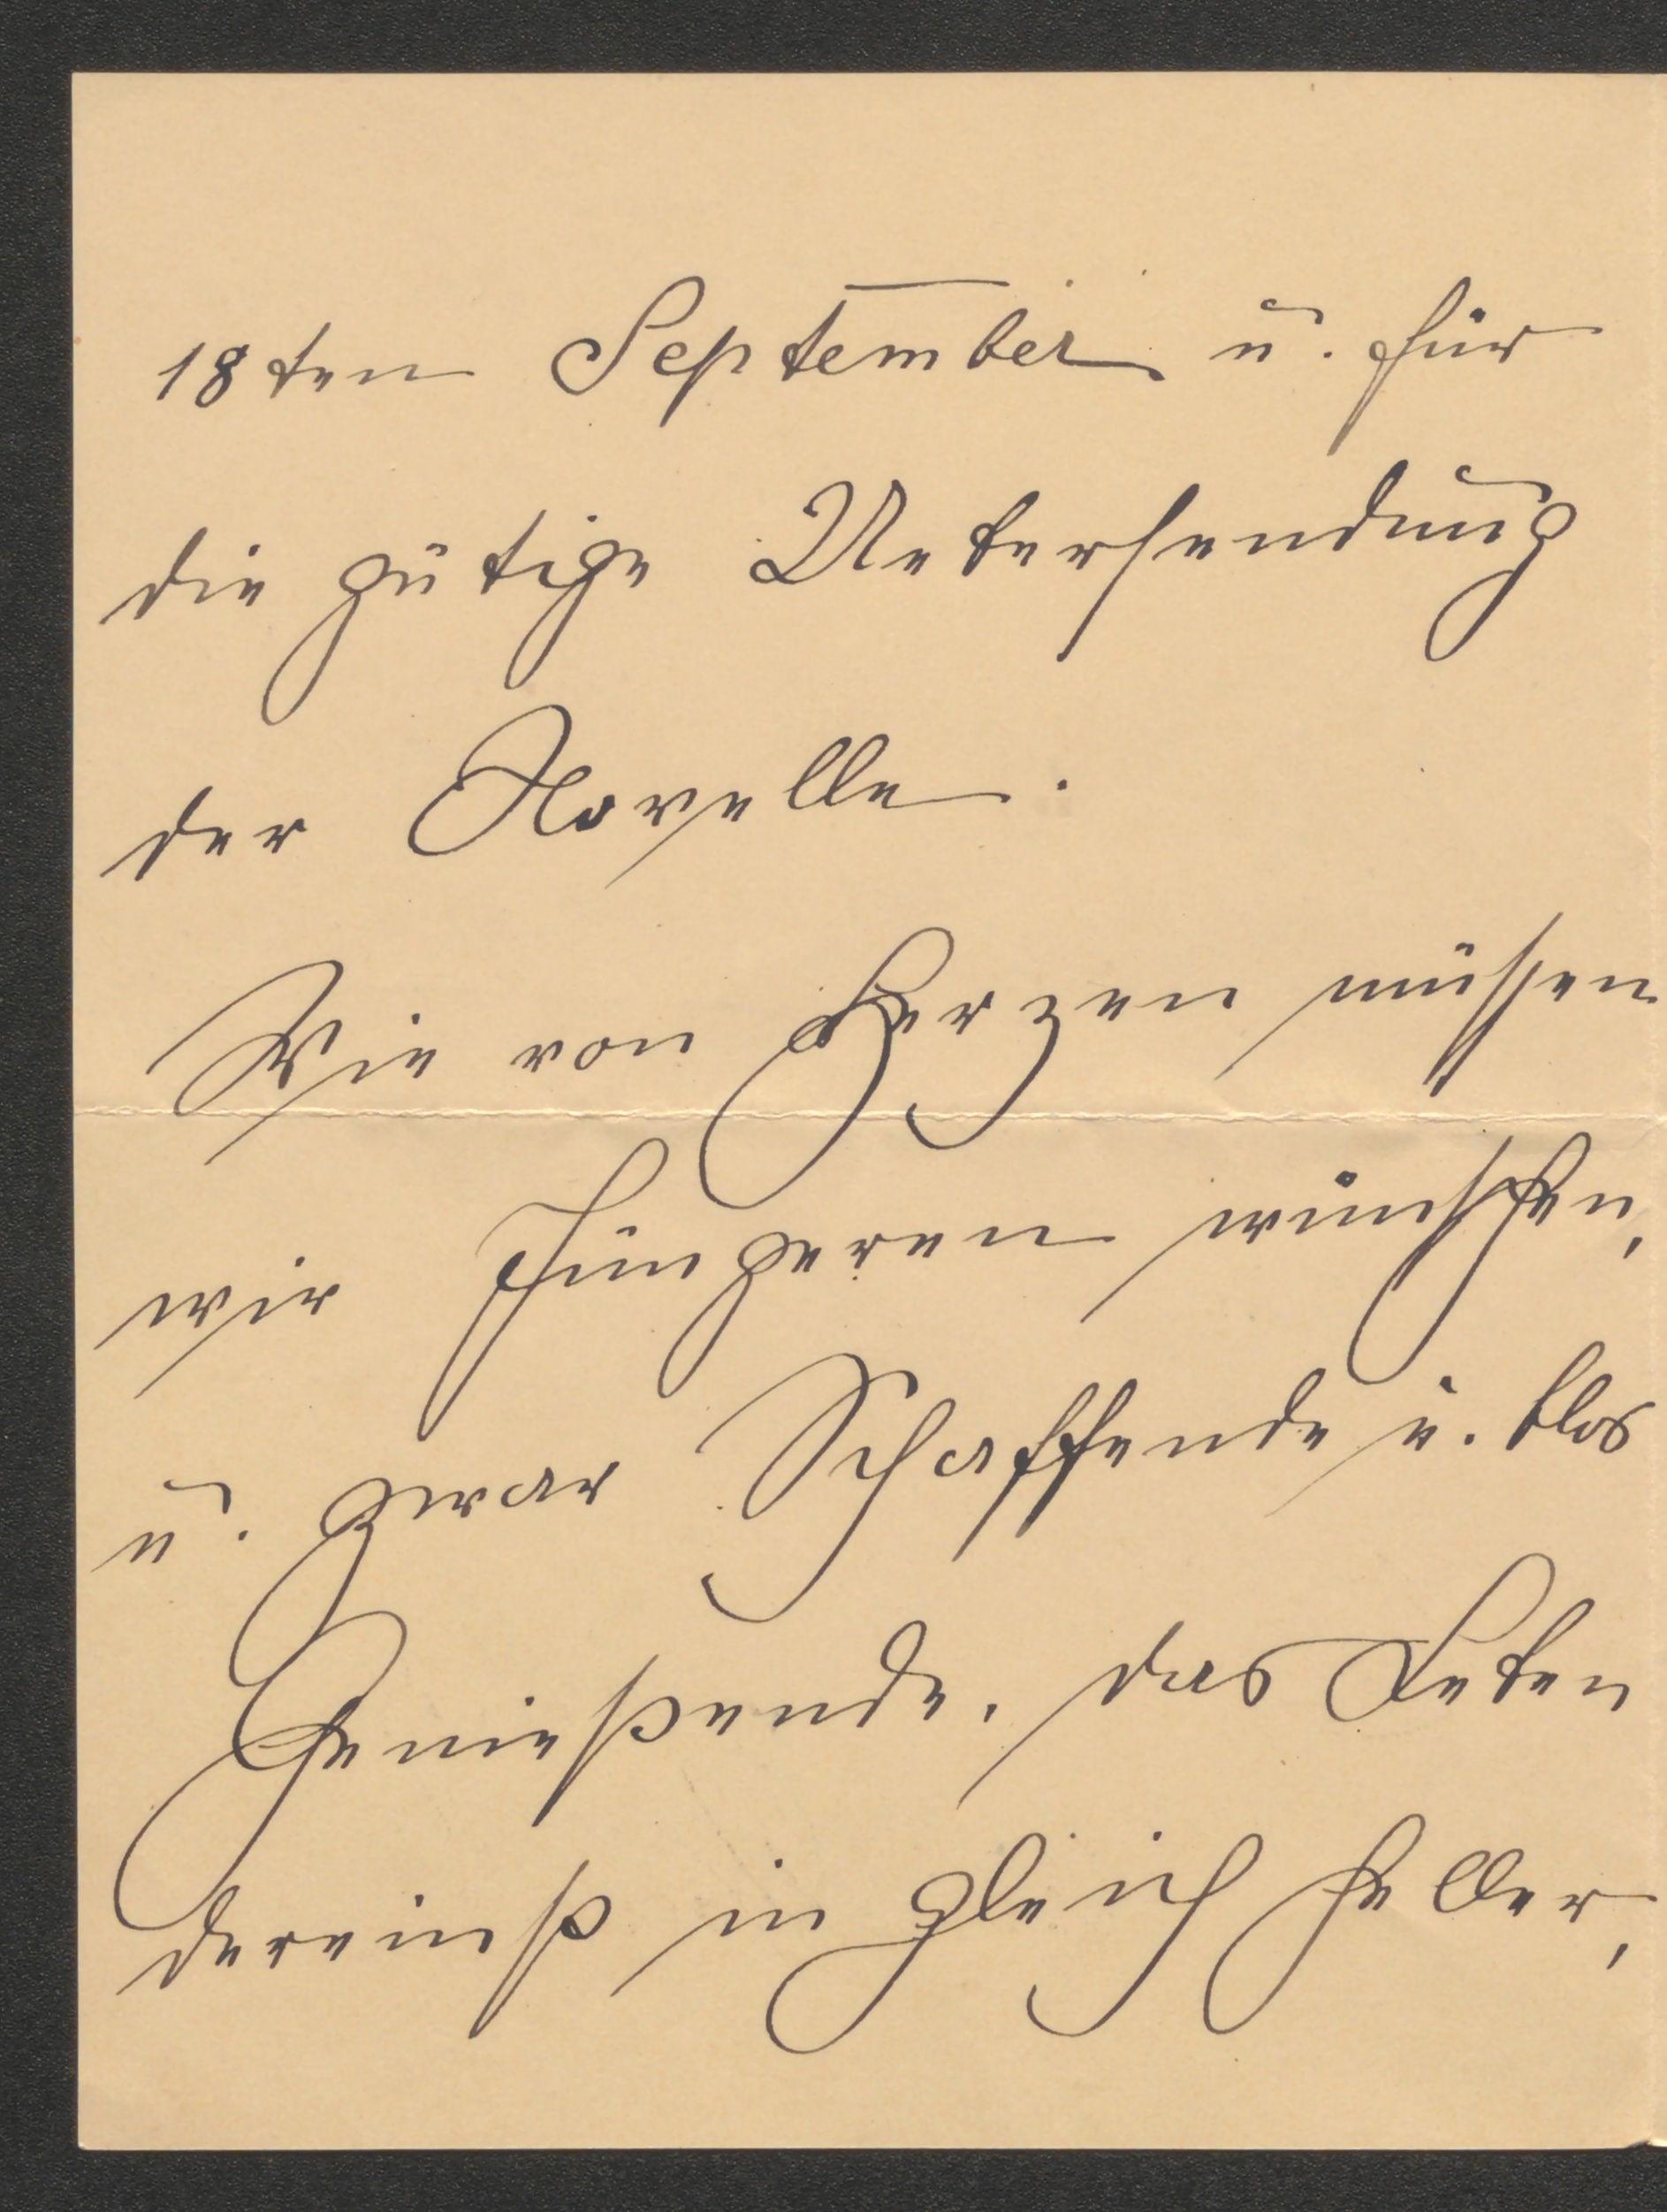 18ten September u. für
die gütige Uebersendung
der Novelle.
Wie von Herzen müssen
wir Jüngeren wünschen,
u. zwar Schaffende u. blos
Genießende, das Leben
dereinst in gleich heller,